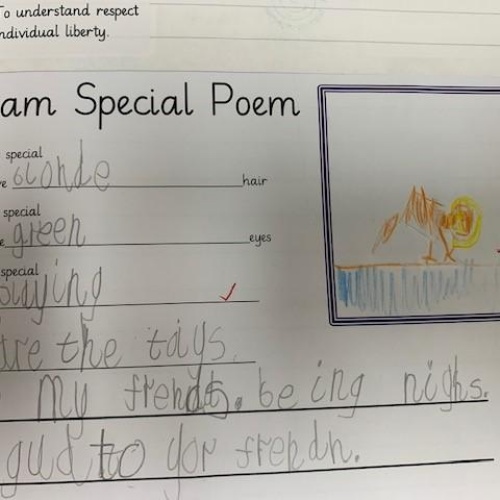 To understand respect
individual liberty.
am Special Poem
special
blonde hair
special
green eyes
special
playing
are the tays.
my frends. being nighs.
gud to yor frendn.